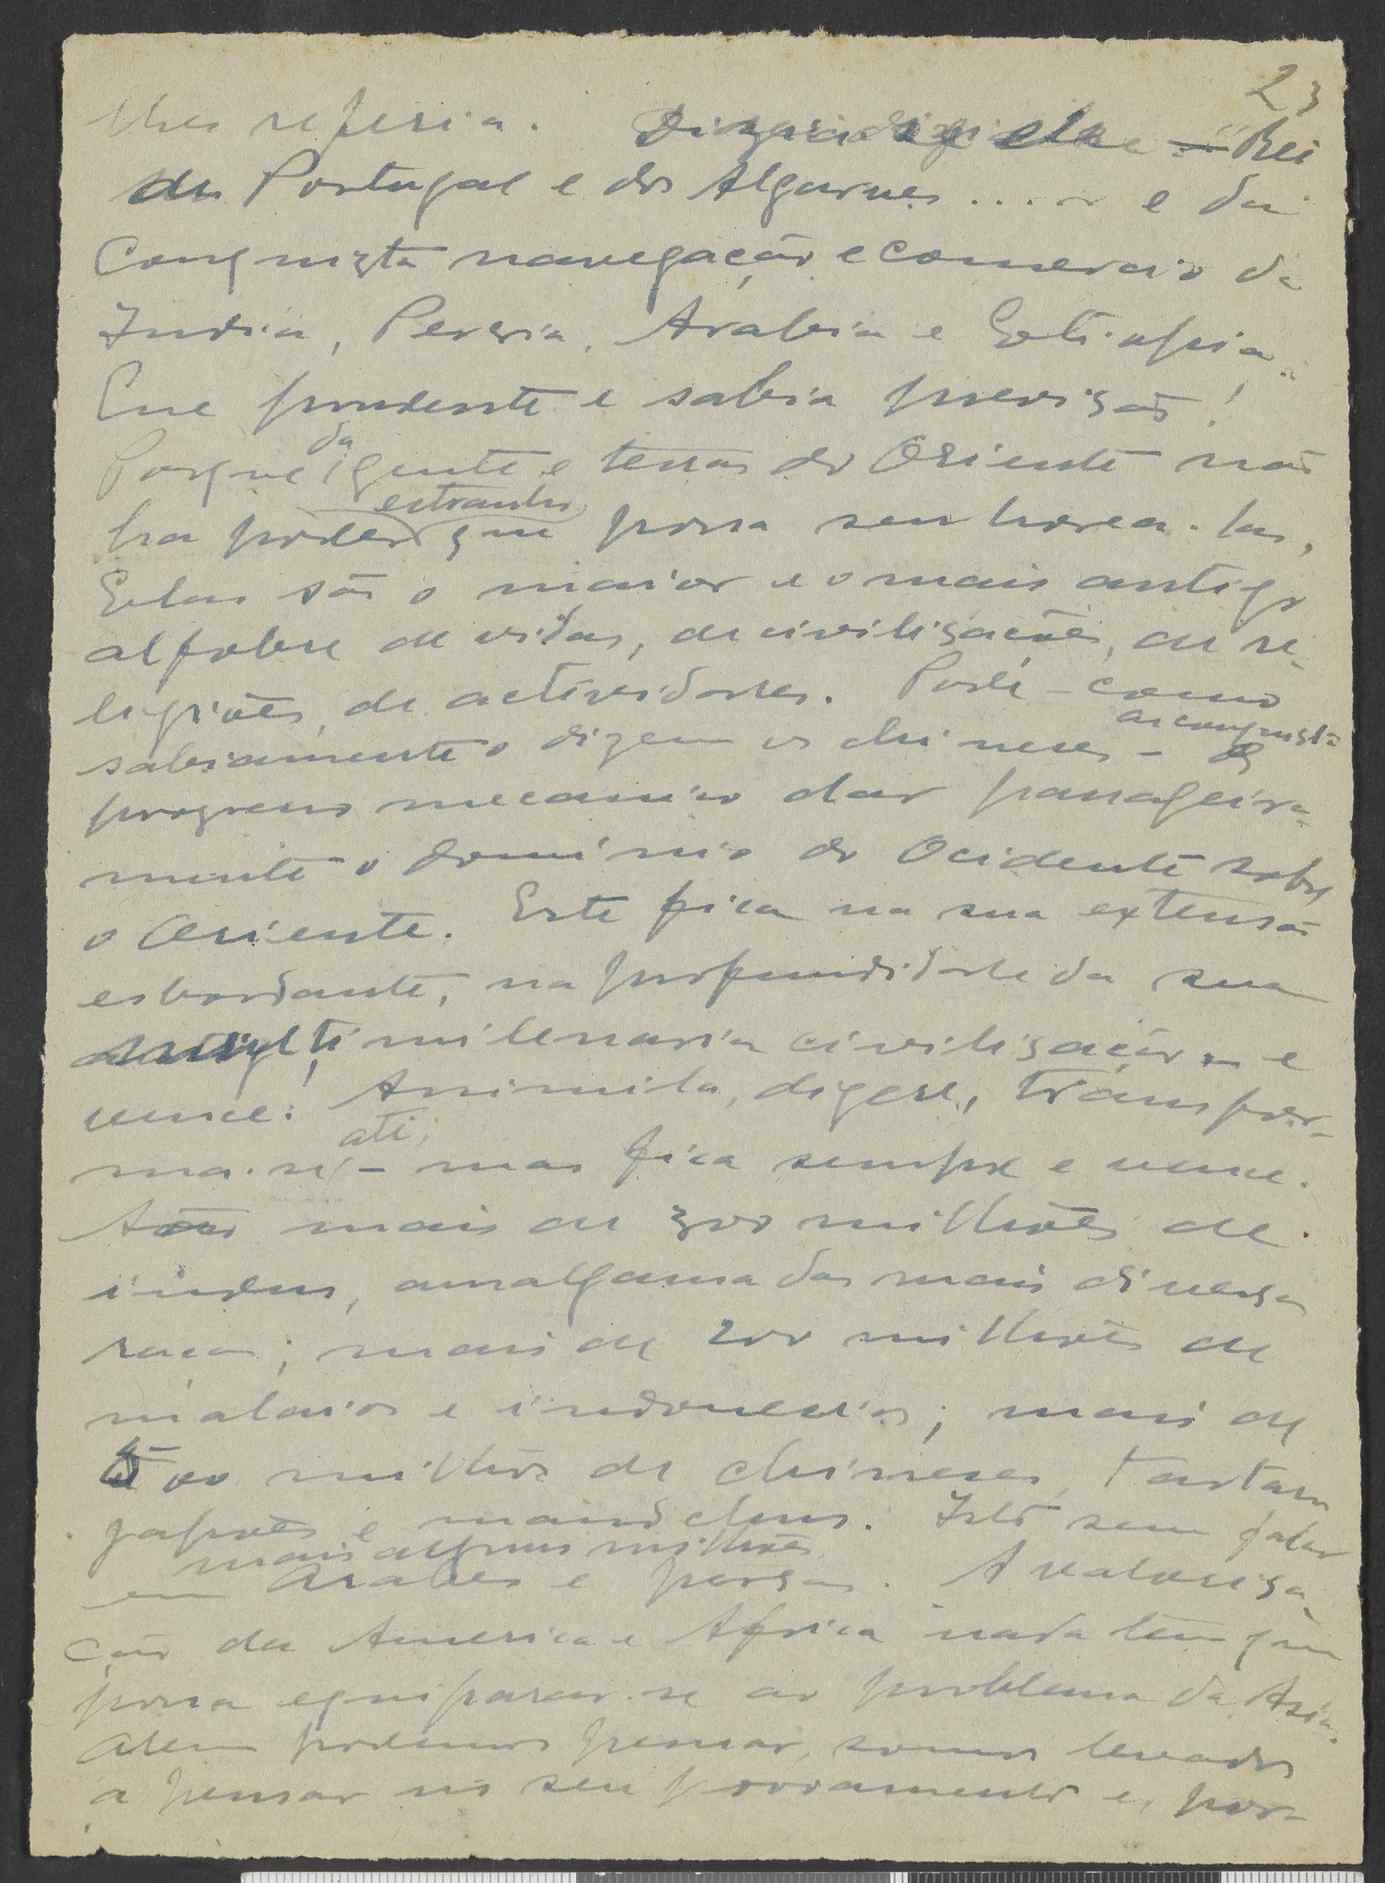 23
lhes referia. Rei
de Portugal e dos Algarves.... e da
Conquista navegação e comercio da
India, Persia, Arabia e Ethiopia..
Que prudente e sabia previsão!
Porque da gente e terras do Oriente não
ha poder estranho que possa senhorea-las,
Elas são o maior e o mais antigo
alfobre de vidas, de civilisações, de re-
ligiões, de actividades. Pode - como
sabiamente o dizem os chineses - a conquista
progresso mecanico dar passageira-
mente o dominio do Ocidente sobre
o Oriente. Este fica na sua extensão
esbordante, na profundidade da sua
multimilenaria civilisação - e
vence. Assimila, digere, transfor-
ma-se até, - mas fica sempre e vence.
mais de 300 milhões de
indus, amalgama das mais diversas
raças; mais de 200 milhões de
malaios e indonesios; mais de
400 milhões de chineses, tartaros
japões e mandchus. Isto sem falar
em mais alguns milhões arabes e persas. A valorisa-
ção da America e Africa nada tem que
possa equiparar-se ao problema da Asia.
Alem podemos pensar, somos levados
a pensar no seu povoamento e, por-